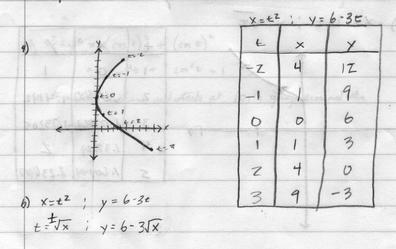 x=t² ; y=6-3t
a)
t x y
-2 4 12
-1 1 9
0 0 6
1 1 3
2 4 0
3 9 -3
y
t=-2
t=-1
t=0
t=1
t=2
x
b) x=t² ; y=6-3t
t=±√x ; y=6-3√x